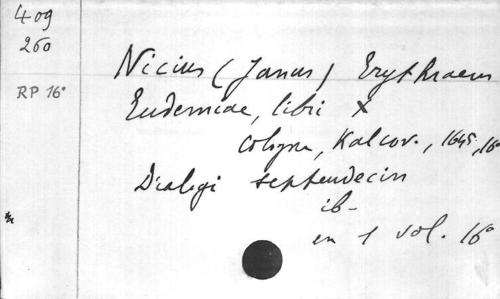 409
260
RP 16°
Nicius (Janus) Erythraeus
Eudemiae, libri X
Cologne, Kalcov., 1645, 16°
Dialogi septendecim
ib-
en 1 vol. 16°